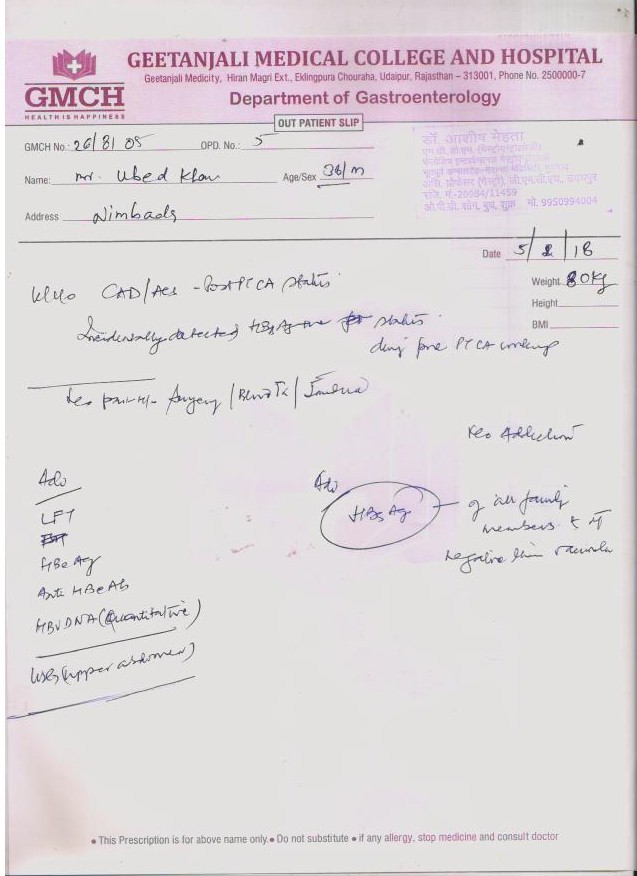 GEETANJALI MEDICAL COLLEGE AND HOSPITAL
Geetanjali Medicity, Hiran Magri Ext., Eklingpura Chouraha, Udaipur, Rajasthan – 313001, Phone No. 2500000-7
GMCH
HEALTH IS HAPPINESS
Department of Gastroenterology
OUT PATIENT SLIP
डॉ. आशीष मेहता
रजि. नं.-20984/11459
मो. 9950994004
GMCH No.: 26/81 05 OPD. No.: 5
Name: mr. Ubed Khan Age/Sex 36/m
Address Nimbads
Date 5/2/18
Weight 80Kg
Height
BMI
CAD/ACS - Post PTCA status
Incidentally detected HBsAg +ve status
during pre PTCA workup
No past H/o Surgery / Blood Tx /
No Addiction
Adv
LFT
HBeAg
Anti HBeAb
HBV DNA (Quantitative)
USG (upper abdomen)
Adv
HBsAg – of all family
members &
negative
• This Prescription is for above name only • Do not substitute • if any allergy, stop medicine and consult doctor